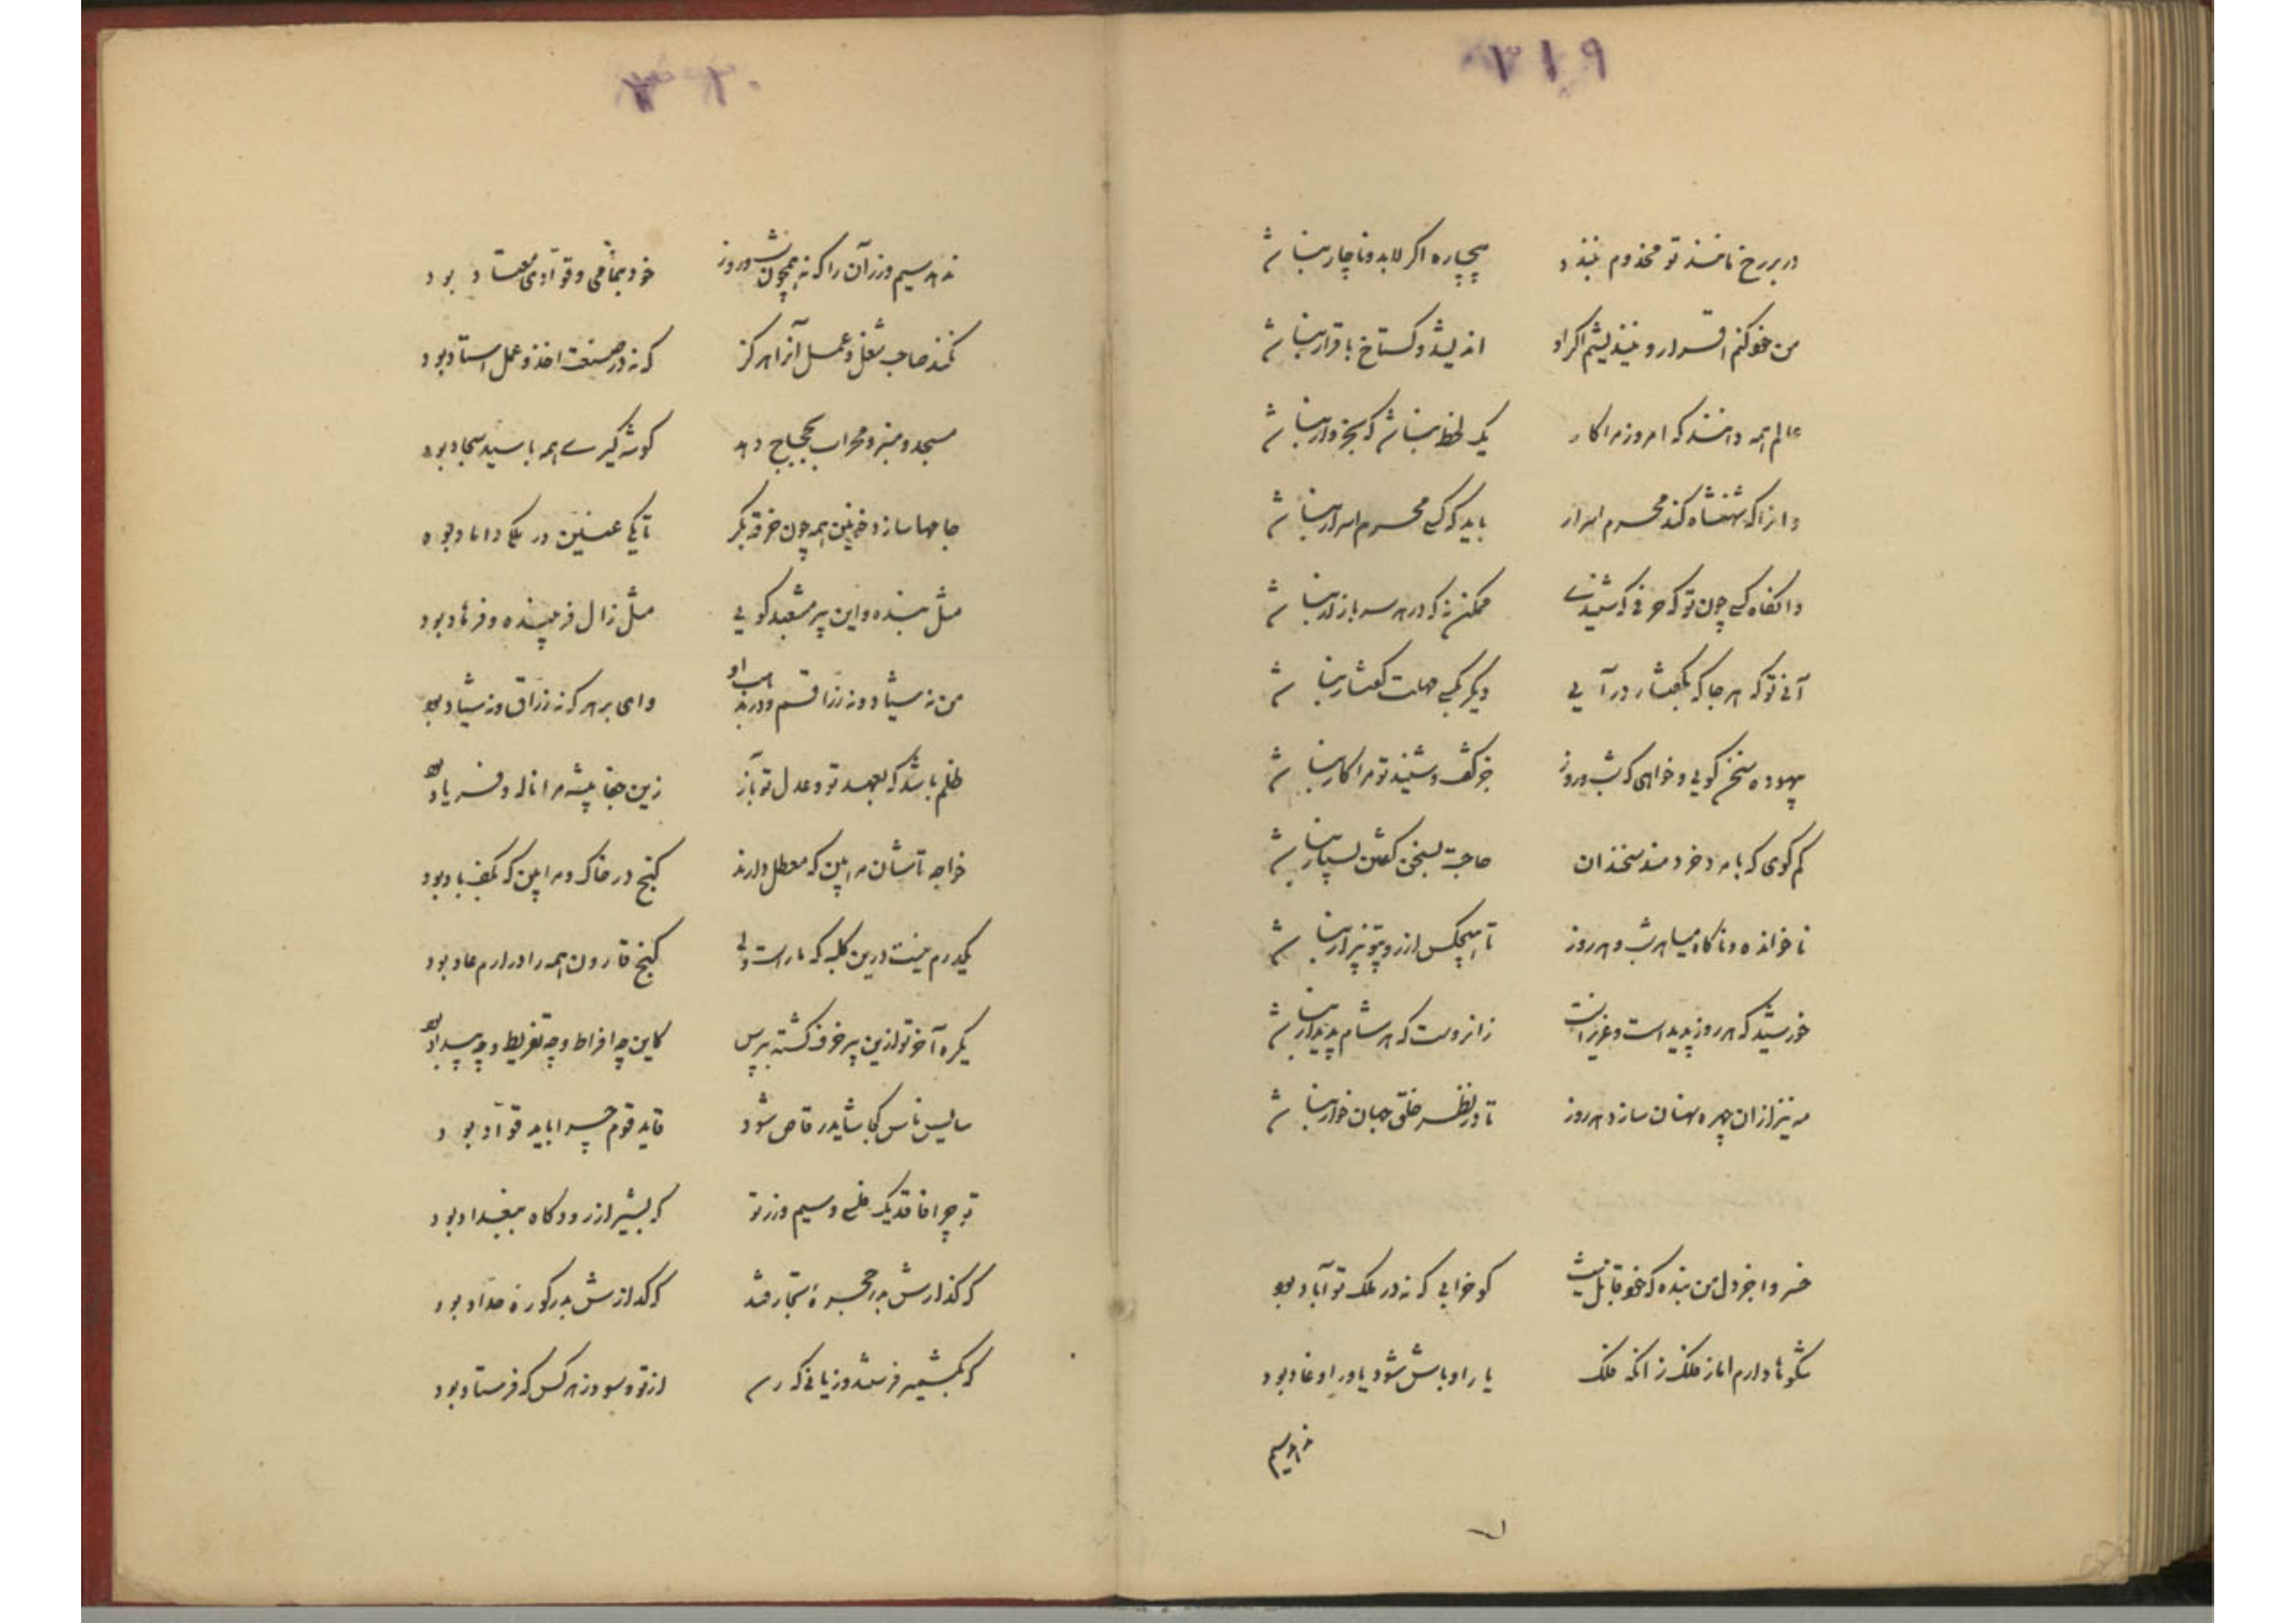 ۳۱۹
در بر رخ نامنذ تو مخدوم ببندد    بیچاره اگر لابد و ناچار نباشد
من خو کنم اقرار و نیندیشم اگر او    اندیشد و گستاخ باقرار نباشد
عالم همه دانند که امروز مرا کار    یک لحظه نباشد که بخروار نباشد
وانرا که شهنشاه کند محرم اسرار    باید که کسی محرم اسرار نباشد
وانگاه کسی چون تو که حرفی که شنیدی    ممکن نه که در هر سر بازار نباشد
آنی تو که هر جا که بگفتار درآیی    دیگر بکسی مهلت گفتار نباشد
بیهوده سخن گویی و خواهی که شب و روز    جز گفت و شنید تو مرا کار نباشد
کم گوی که با مرد خردمند سخندان    حاجت بسخن گفتن بسیار نباشد
ناخوانده و ناگاه میا هر شب و هر روز    تا هیچکس از رویت بیزار نباشد
خورشید که هر روز پدید است و عزیز است    زانروست که هر شام پدیدار نباشد
مه نیز از آن چهره نهان سازد هر روز    تا در نظر خلق جهان خوار نباشد
خسروا جز دل من بنده که خود قابل نیست    کو خرابی که نه در ملک تو آباد بود
شکوه‌ها دارم اما ز فلک زانکه فلک    یار اوباش شود یاور اوغاد بود
ندهد سیم
۳۲۰
ندهد سیم و زر آن را که نه همچون شب و روز    خود بنمامی و قوادی معتاد بود
نکند صاحب شغل و عمل آنرا هرگز    که نه در صنعت اخذ و عمل استاد بود
مسجد و منبر و محراب بحجاج دهد    گوشه گیری همه با سید سجاد بود
جامها سازد خونین همه چون خرقه بکر    تا یکی عنین در ملکی داماد بود
مثل بنده و این پیر مشعبد گویی    مثل زال فریبنده و فرهاد بود
من نه شیاد و نه زراقم و در مذهب او    وای بر هر که نه زراق و نه شیاد بود
ظلم باشد که بعهد تو و عدل تو باز    زین جفا پیشه مرا ناله و فریاد بود
خواجه تاشان مرا بین که معطل دارند    گنج در خاک و مرا بین که بکف باد بود
یکدرم نیست درین کلبه که ما راست ولی    گنج قارون همه را در ارم عاد بود
یکره آخر تو ازین پیر خرف گشته بپرس    کاین چه افراط و چه تفریط و چه بیداد بود
سایس ناس کجا شاید رقاص شود    قاید قوم چرا باید قواد بود
به چرا فاقد یک فلسی و سیم و زر تو    که بشیراز رود گاه ببغداد بود
که گذارش بدر حجره تجار فتد    که گدازش بدر کوره حداد بود
که بکشمیر فرستد وز یانی که رسد    از تو و سود ز هر کس که فرستاد بود